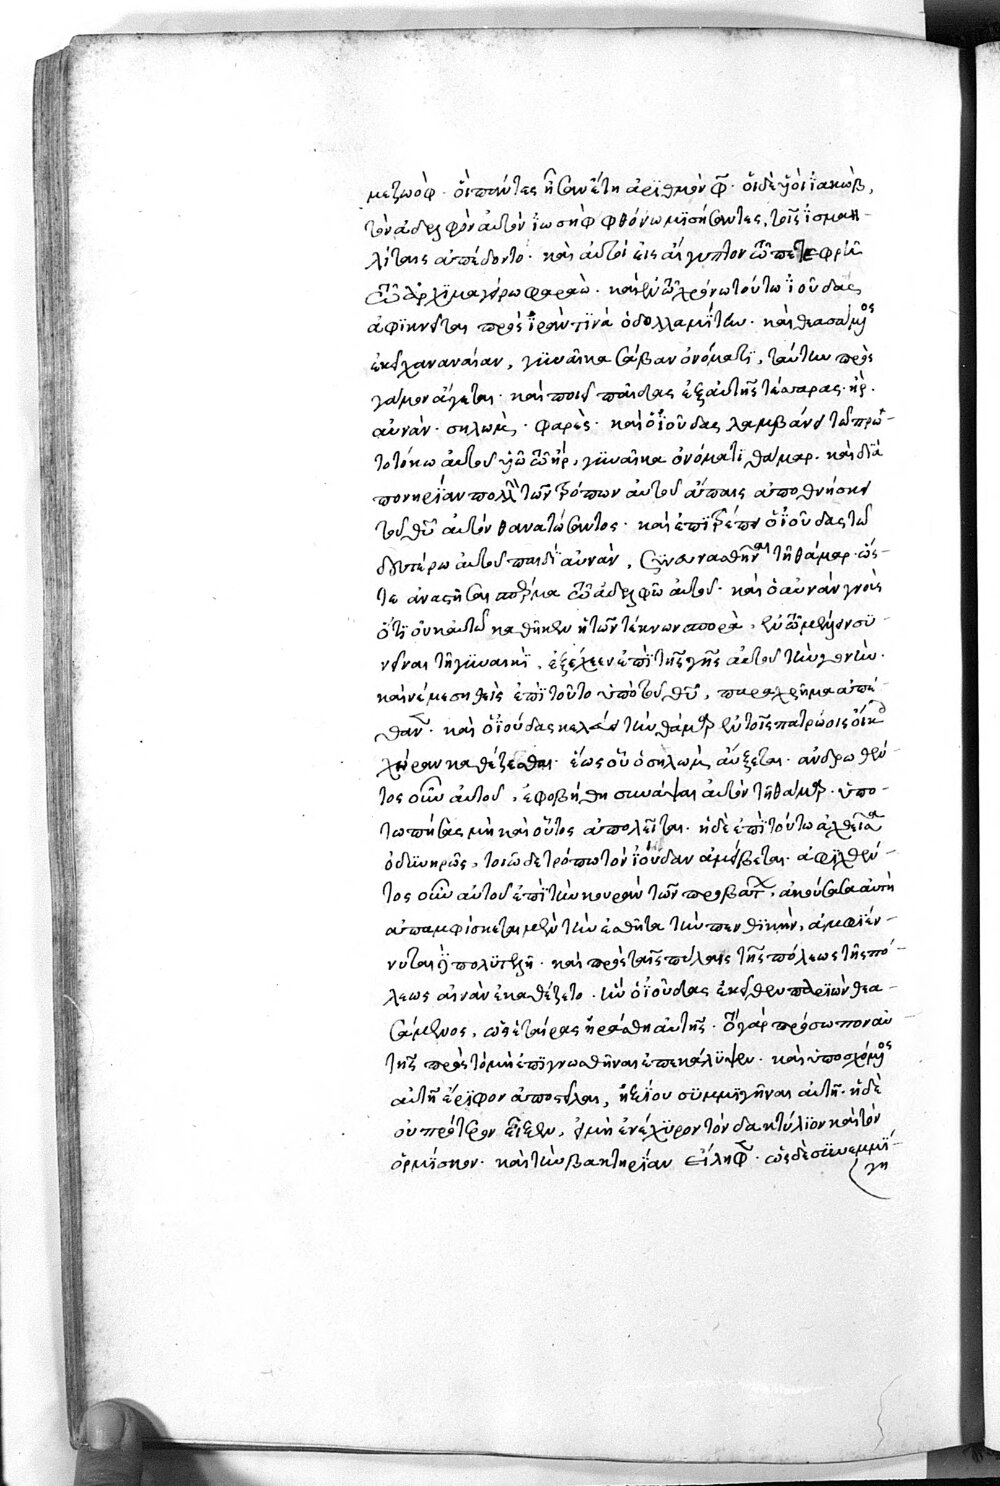 μεζωὸφ· οἱ πάντες ἦσαν ἔτη ἀριθμὸν φ̅· οἱ δὲ υἱοὶ ἰακὼβ,
τὸν ἀδελφὸν αὐτῶν ἰωσὴφ φθόνω μισήσαντες, τοῖς ἰσμαη-
λίταις ἀπέδοντο· καὶ αὐτοὶ εἰς αἴγυπτον τῶ πετεφρῆ
τῶ ἀρχιμαγείρω φαραώ· καὶ ἐν τῶ χρόνω τούτω ἰούδας
ἀφικνεῖται πρὸς ἱρὰν τινὰ ὀδολλαμίτην· καὶ θεασάμενος
ἐκεῖ χαναναίαν, γυναῖκα σάβαν ὀνόματι, ταύτην πρὸς
γάμον ἄγεται· καὶ ποιεῖ παῖδας ἐξ αὐτῆς τέσσαρας· ἤρ·
αὐνάν· σηλώμ· φαρές· καὶ ὁ ἰούδας λαμβάνει τῶ πρω-
τοτόκω αὐτοῦ υἱῶ τῶ ἤρ, γυναῖκα ὀνόματι θάμαρ· καὶ διὰ
πονηρίαν πολλὴν τῶν τρόπων αὐτοῦ ἄπαις ἀποθνήσκει
τοῦ θυ αὐτὸν θανατώσαντος· καὶ ἐπιτρέπει ὁ ἰούδας τῶ
δευτέρω αὐτοῦ παιδὶ αὐνάν, συναφθῆναι τῆ θάμαρ· ὥσ-
τε ἀναστῆσαι σπέρμα τῶ ἀδελφῶ αὐτοῦ· καὶ ὁ αὐνὰν γνοὺς
ὅτι οὐκ αὐτῶ καθῆκεν ἡ τῶν τέκνων σπορὰ, ἐν τῶ μέλλειν συ-
νεῖναι τῆ γυναικὶ, ἐξέχεεν ἐπὶ τῆς γῆς αὐτοῦ τὴν γονήν·
καὶ νεμεσηθεὶς ἐπὶ τοῦτο ὑπὸ τοῦ θυ, παραχρῆμα ἀπέ-
θανεν· καὶ ὁ ἰούδας κελεύει τὴν θάμαρ ἐν τοῖς πατρώοις οἴκοις
χήραν καθέζεσθαι· ἕως οὗ ὁ σηλὼμ αὔξεται· ἀνδρωθέν-
τος οὖν αὐτοῦ, ἐφοβήθη συνάψαι αὐτὸν τῆ θάμαρ· ὑπο-
τοπήσας μὴ καὶ οὗτος ἀπολεῖται· ἡ δὲ ἐπὶ τούτω ἀχθεῖσα
ὀδυνηρῶς, τοιῶδε τρόπω τὸν ἰούδαν ἀμείβεται· ἀπελθόν-
τος οὖν αὐτοῦ ἐπὶ τὴν κουρὰν τῶν προβάτων, ἀκούσασα αὐτὴ
ἀπαμφίσκεται μὲν τὴν ἐσθῆτα τὴν πενθικὴν, ἀμφιέν-
νυται πολυτελῆ· καὶ πρὸς ταῖς πύλαις τῆς πόλεως τῆς πό-
λεως αἰνὰν ἐκαθέζετο· ἣν ὁ ἰούδας ἐκεῖθεν παριὼν θεα-
σάμενος, ὡς ἑταίρας ἠράσθη αὐτῆς· τὸ γὰρ πρόσωπον αὐ
τῆς πρὸς τὸ μὴ ἐπιγνωσθῆναι ἐπεκάλυψεν· καὶ ὑποσχόμενος
αὐτῆ ἔριφον ἀποστεῖλαι, ἠξίου συμμιγῆναι αὐτῆ· ἡ δὲ
οὐ πρότερον εἶξεν, εἰ μὴ ἐνέχυρον τὸν δακτύλιον καὶ τὸν
ὁρμίσκον· καὶ τὴν βακτηρίαν εἴληφεν· ὡς δὲ συνεμμί-
γη